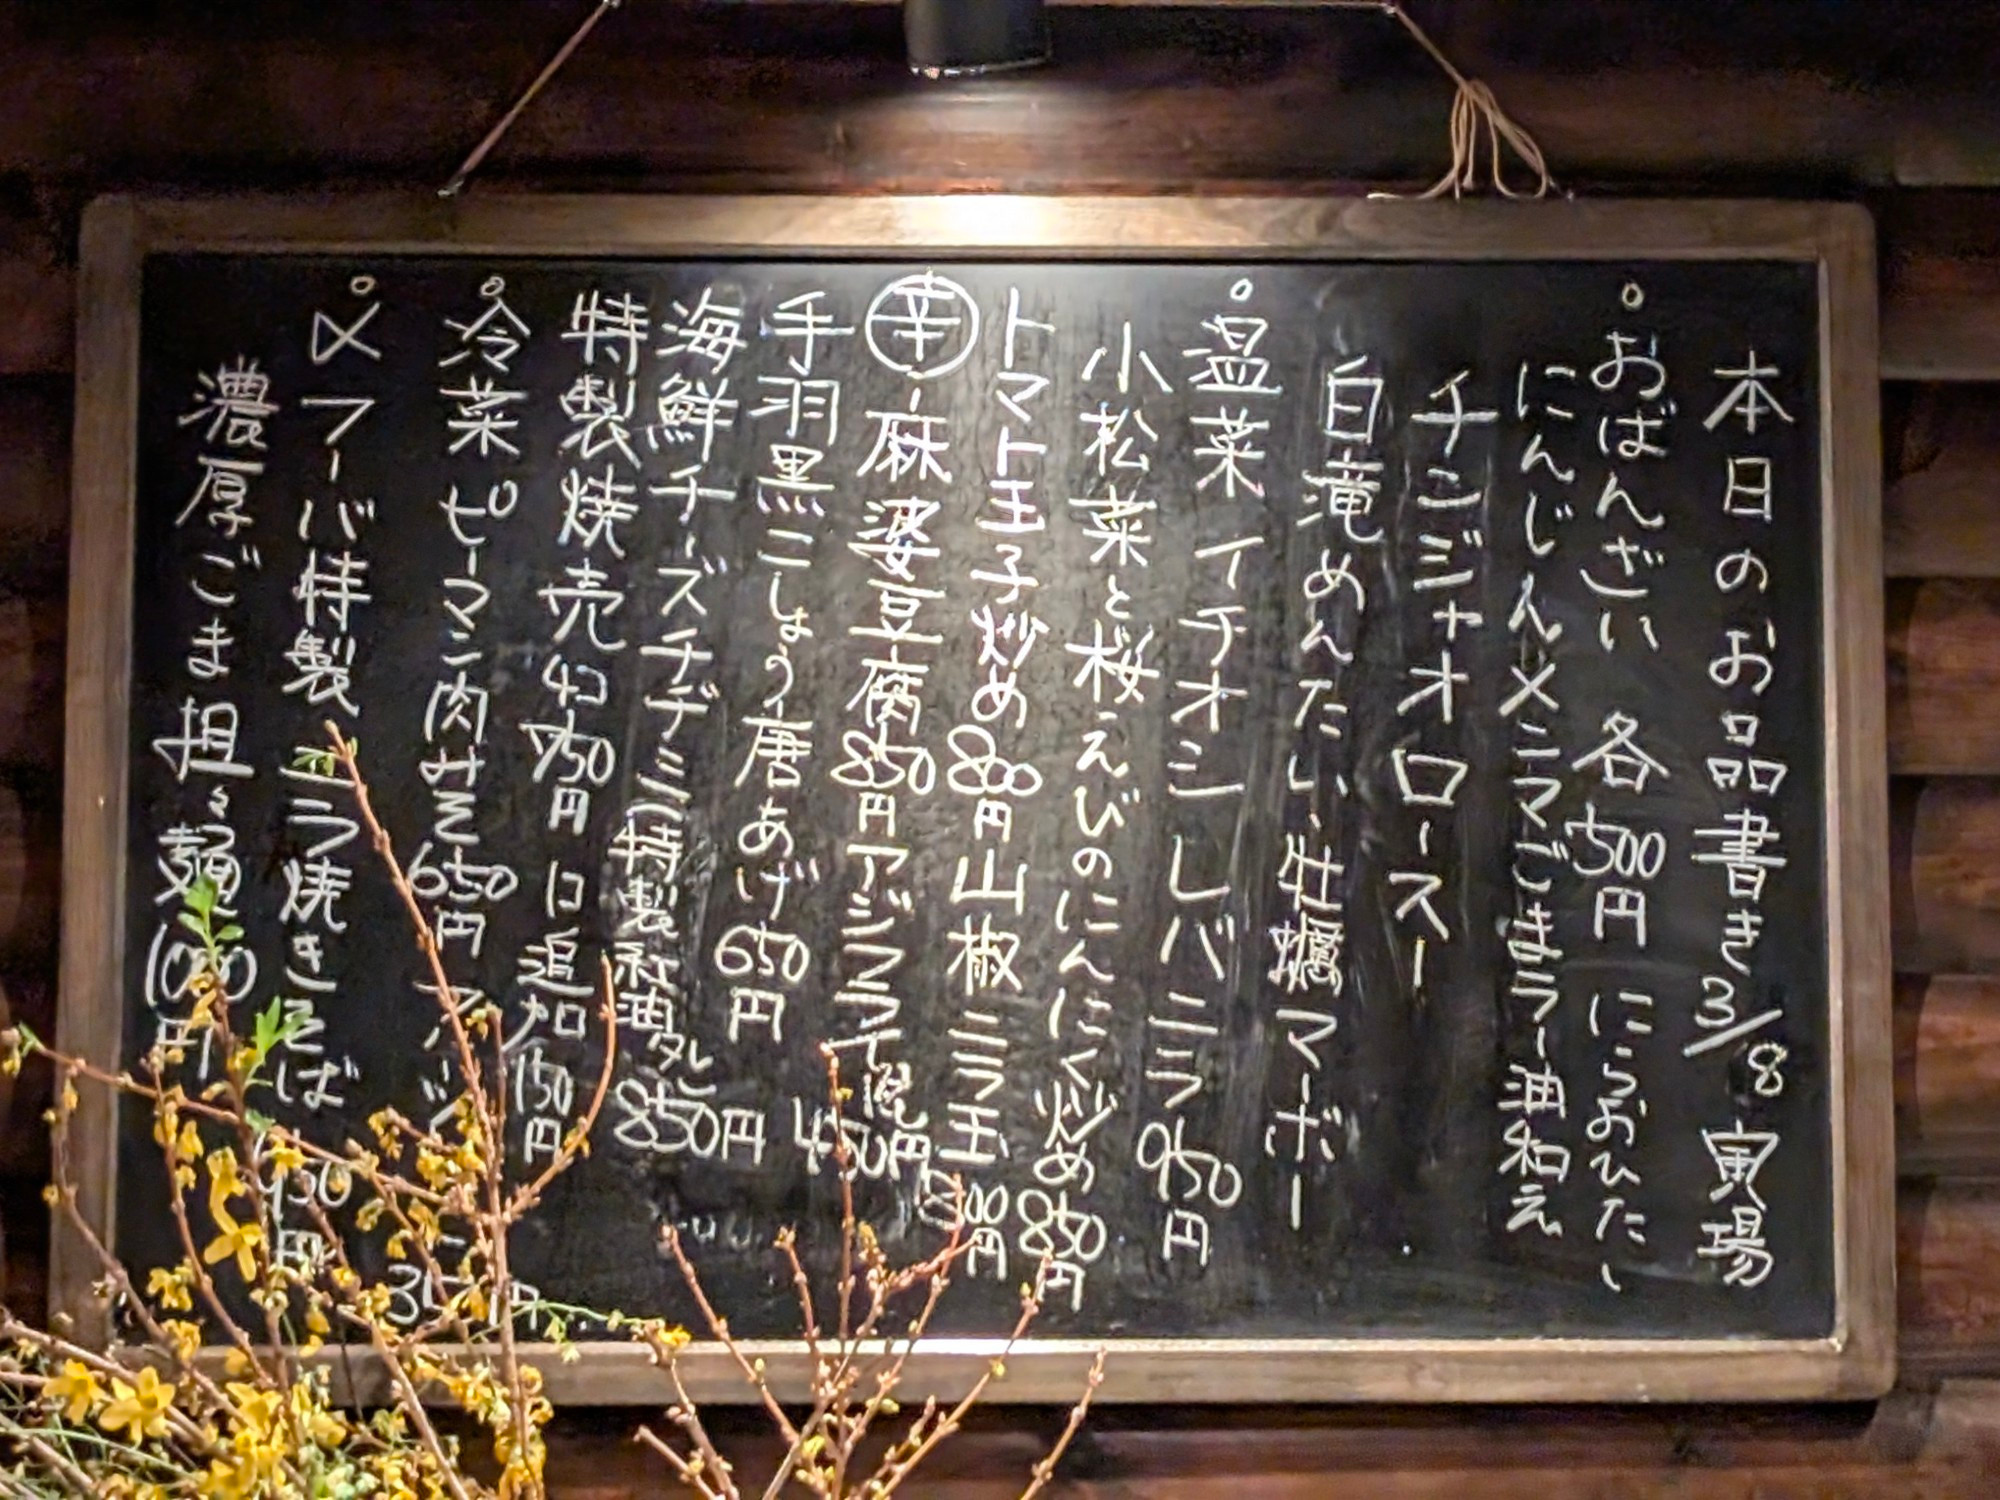 本日のお品書き3/8 寅場
○おばんざい 各500円 にらおひたし
にんじんメンマごまラー油和え
チンジャオロースー
白滝めんたい、牡蠣マーボー
○温菜 イチオシ レバニラ 950円
小松菜と桜えびのにんにく炒め 850円
トマト玉子炒め 800円 山椒ニラ玉 800円
㊛
麻婆豆腐 850円 アジフライ
手羽黒こしょう唐あげ 650円
海鮮チーズチヂミ(特製紅油タレ 850円
特製焼売 4コ 750円 1コ追加 150円
○冷菜 ピーマン肉みそ 650円
○〆 フーバ特製 ニラ焼きそば 950円
濃厚ごま担々麺 1000円